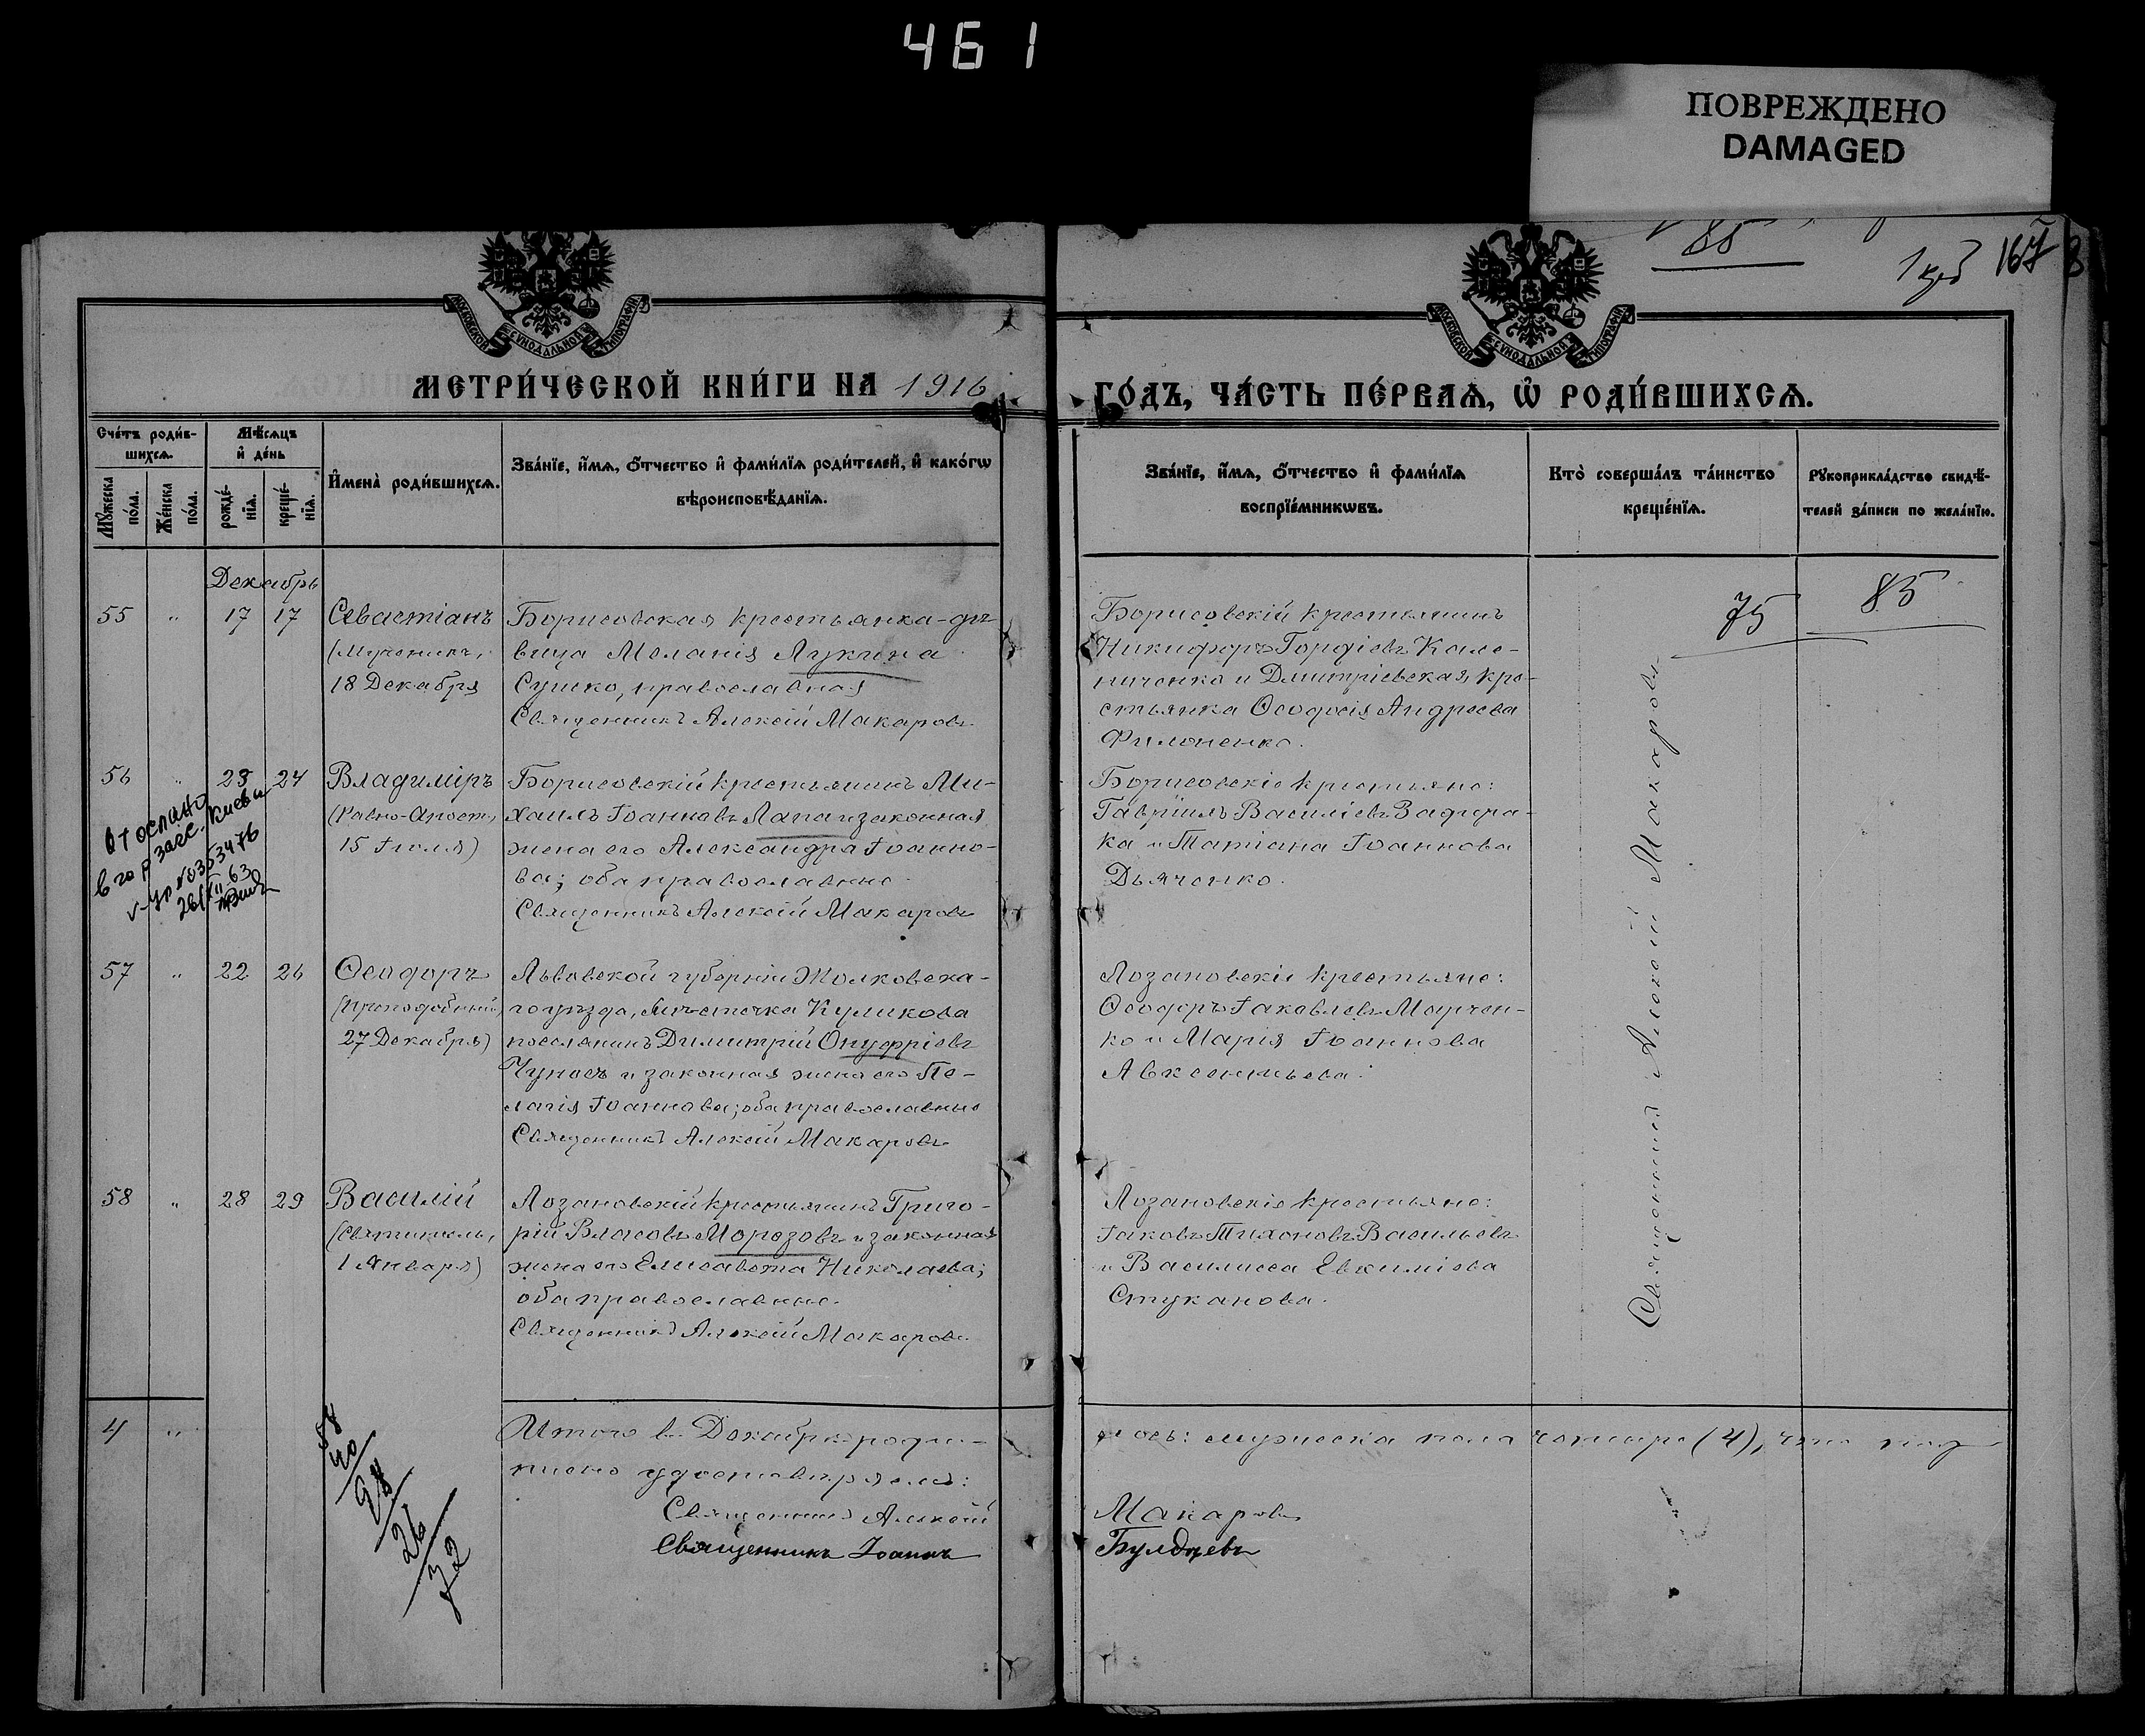 461
ПОВРЕЖДЕНО
DAMAGED
85
167
МОСКОВСКОЙ СѴНОДАЛЬНОЙ ТИПОГРАФІИ
МОСКОВСКОЙ СѴНОДАЛЬНОЙ ТИПОГРАФІИ
МЕТРИ́ЧЕСКОЙ КНИ́ГИ НА 1916
ГО́ДЪ, ЧА́СТЬ ПЕ́РВАѦ, Ѽ РОДИ́ВШИХСѦ.
Сче́тъ роди́в-
шихсѧ.
Мꙋ́жеска по́ла.
Же́нска по́ла.
Мѣ́сѧцъ
и҆ де́нь
рожде́-
нїѧ.
креще́-
нїѧ.
И҆мена̀ роди́вшихсѧ.
Зва́нїе, и҆́мѧ, ѻ҆́тчество и҆ фами́лїѧ роди́телей, и҆ како́гѡ
вѣроисповѣ́данїѧ.
Зва́нїе, и҆́мѧ, ѻ҆́тчество и҆ фами́лїѧ
воспрїе́мникѡвъ.
Кто̀ соверша́лъ та́инство
креще́нїѧ.
Рꙋкоприкла́дство свидѣ́-
телей за́писи по жела́нїю.
Декабрь
55 " 17 17 Севастіанъ
(Мученикъ,
18 Декабря
Борисовская крестьянка-дѣ-
вица Меланія Лукина
Сушко, православная
Священникъ Алексій Макаровъ
Борисовскій крестьянинъ
Никифоръ Гордіевъ Кале-
ниченко и Димитріевская кре-
стьянка Ѳеодосія Андреева
Филоненко.
75
85
56 " 23 24 Владиміръ
(Равно-Апост.,
15 Іюля)
Борисовскій крестьянинъ Ми-
хаилъ Іоанновъ Лапа и законная
жена его Александра Іоанно-
ва; оба православные
Священникъ Алексій Макаровъ
Борисовскіе крестьяне:
Гавріилъ Василіевъ Зафера-
ка и Татіана Іоаннова
Дьяченко.
57 " 22 26 Ѳеодоръ
(Преподобный,
27 Декабря)
Львовской губерніи Жолковска-
го уѣзда, мѣстечка Куликова
поселянинъ Димитрій Онуфріевъ
Чуносъ и законная жена его Пе-
лагія Іоаннова; оба православные
Священникъ Алексій Макаровъ
Лозановскіе крестьяне:
Ѳеодоръ Іаковлевъ Марчен-
ко и Марія Іоаннова
Авксентьева.
58 " 28 29 Василій
(Святитель,
1 Января)
Лозановскій крестьянинъ Григо-
рій Власовъ Морозовъ и законная
жена его Елисавета Николаева;
оба православные.
Священникъ Алексій Макаровъ.
Лозановскіе крестьяне:
Іаковъ Тихоновъ Васильевъ
и Василисса Евѳиміева
Стуканова.
Священникъ Алексій Макаровъ
4 "
Итого въ Декабрѣ роди-
лось: мужеска пола четыре (4), что под-
писью удостовѣряемъ:
Священникъ Алексій Макаровъ
Священникъ Іоаннъ Булдчевъ
58
40
98
26
72